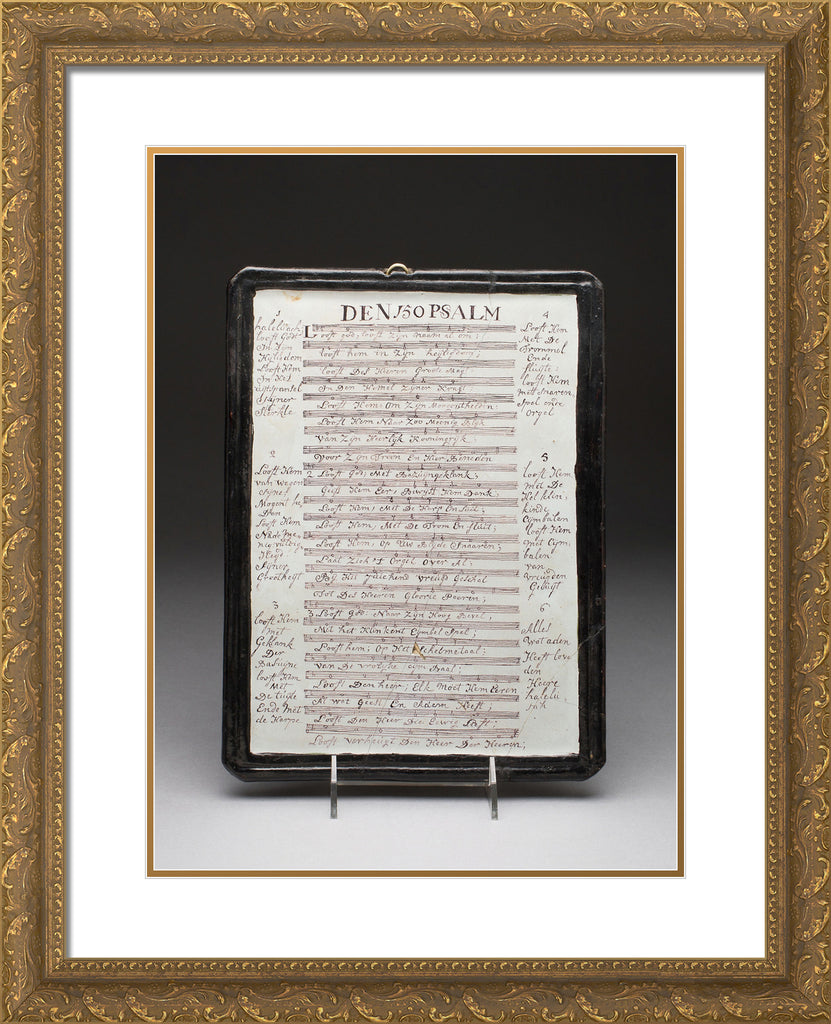 DEN 150 PSALM
1
haleluiach
looft Godt
In Zyn
Heyligdom
Looft Hem
In Het
uijtspansel
Zijner
Sterkte
2
Looft Hem
van wegen
Zynel
Mogenthe
Den
looft Hem
Na de me
nigvuldig
Heyd
Zyner
Grootheyt
3
looft Hem
met
Geklank
Der
Basuyne
looft Hem
Met
De Luijte
Ende Met
de Harpe
Looft god, looft Zijn naam al om;
looft hem in Zyn heyligdom;
looft Des Heeren Groote Magt
In Den Hemel Zyner Kragt
Looft Hem Om Zyn Mogentheden
Looft Hem Naar Zoo Meenig Blyk
Van Zyn Heerlyk Kooningryk
Voor Zyn Troon En Hier Beneden
2 Looft God, Met Bazuyngeklank;
Geeft Hem Eer, Bewyst Hem Dank;
Looft Hem, Met De Harp En Luit;
Looft Hem, Met De Trom En fluit;
Looft Hem, Op Uw Blyde Snaaren;
Laat Zich 't Orgel Over Al;
By Het Juichend vreugd Geschal
Tot Des Heeren Gloorie Paaren;
3 Looft god Naar Zyn Hoog Bevel,
Met het Klinkent Cymbel Spel;
Looft hem, Op Het Schelmetaal;
Van De vrolyke Cym Baal;
Looft Den heer, Elk Moet Hem Eeren
Al wat Geest En Adem Heeft;
Looft Den Heer Die Eewig Left;
Looft verheugt Den Heer Der Heeren;
4
Looft Hem
Met De
Trommel
Ende
fluijte
looft Hem
mett Snaren
Spel ende
Orgel
5
looft Hem
met De
Hel klin
kinde
Cymbalen
looft Hem
met Cym
balen
van
vreugden
Geluijt
6
Alles
Wat aden
Heeft love
den
Heere
halelu
jah